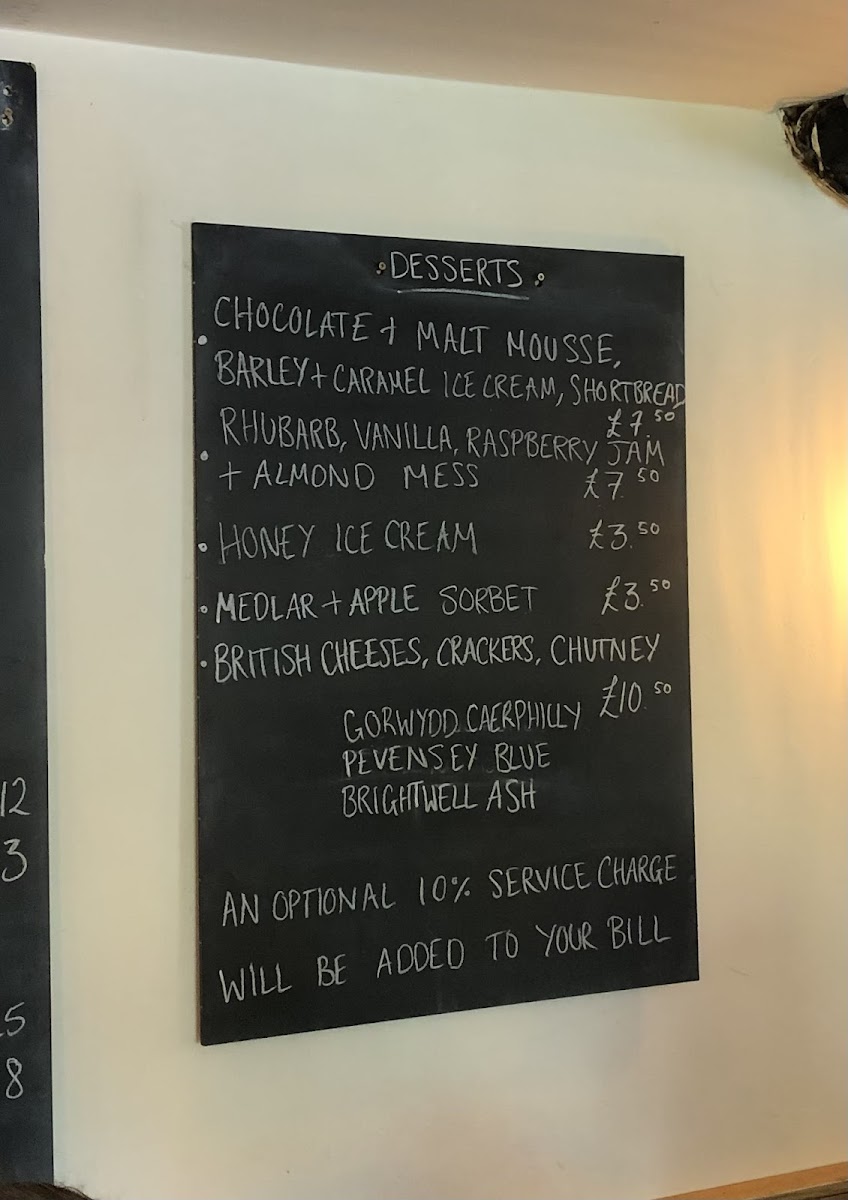 DESSERTS
CHOCOLATE + MALT MOUSSE,
BARLEY + CARAMEL ICE CREAM, SHORTBREAD
£7.50
RHUBARB, VANILLA, RASPBERRY JAM
+ ALMOND MESS £7.50
HONEY ICE CREAM £3.50
MEDLAR + APPLE SORBET £3.50
BRITISH CHEESES, CRACKERS, CHUTNEY
£10.50
GORWYDD CAERPHILLY
PEVENSEY BLUE
BRIGHTWELL ASH
AN OPTIONAL 10% SERVICE CHARGE
WILL BE ADDED TO YOUR BILL
12
3
5
8